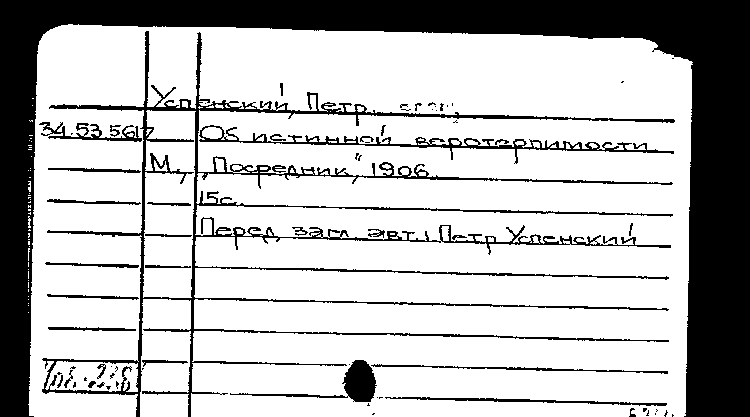 Успенский, Петр
34.53.5617 Об истинной веротерпимости
М., „Посредник", 1906.
15с.
Перед загл. авт.: Петр Успенский